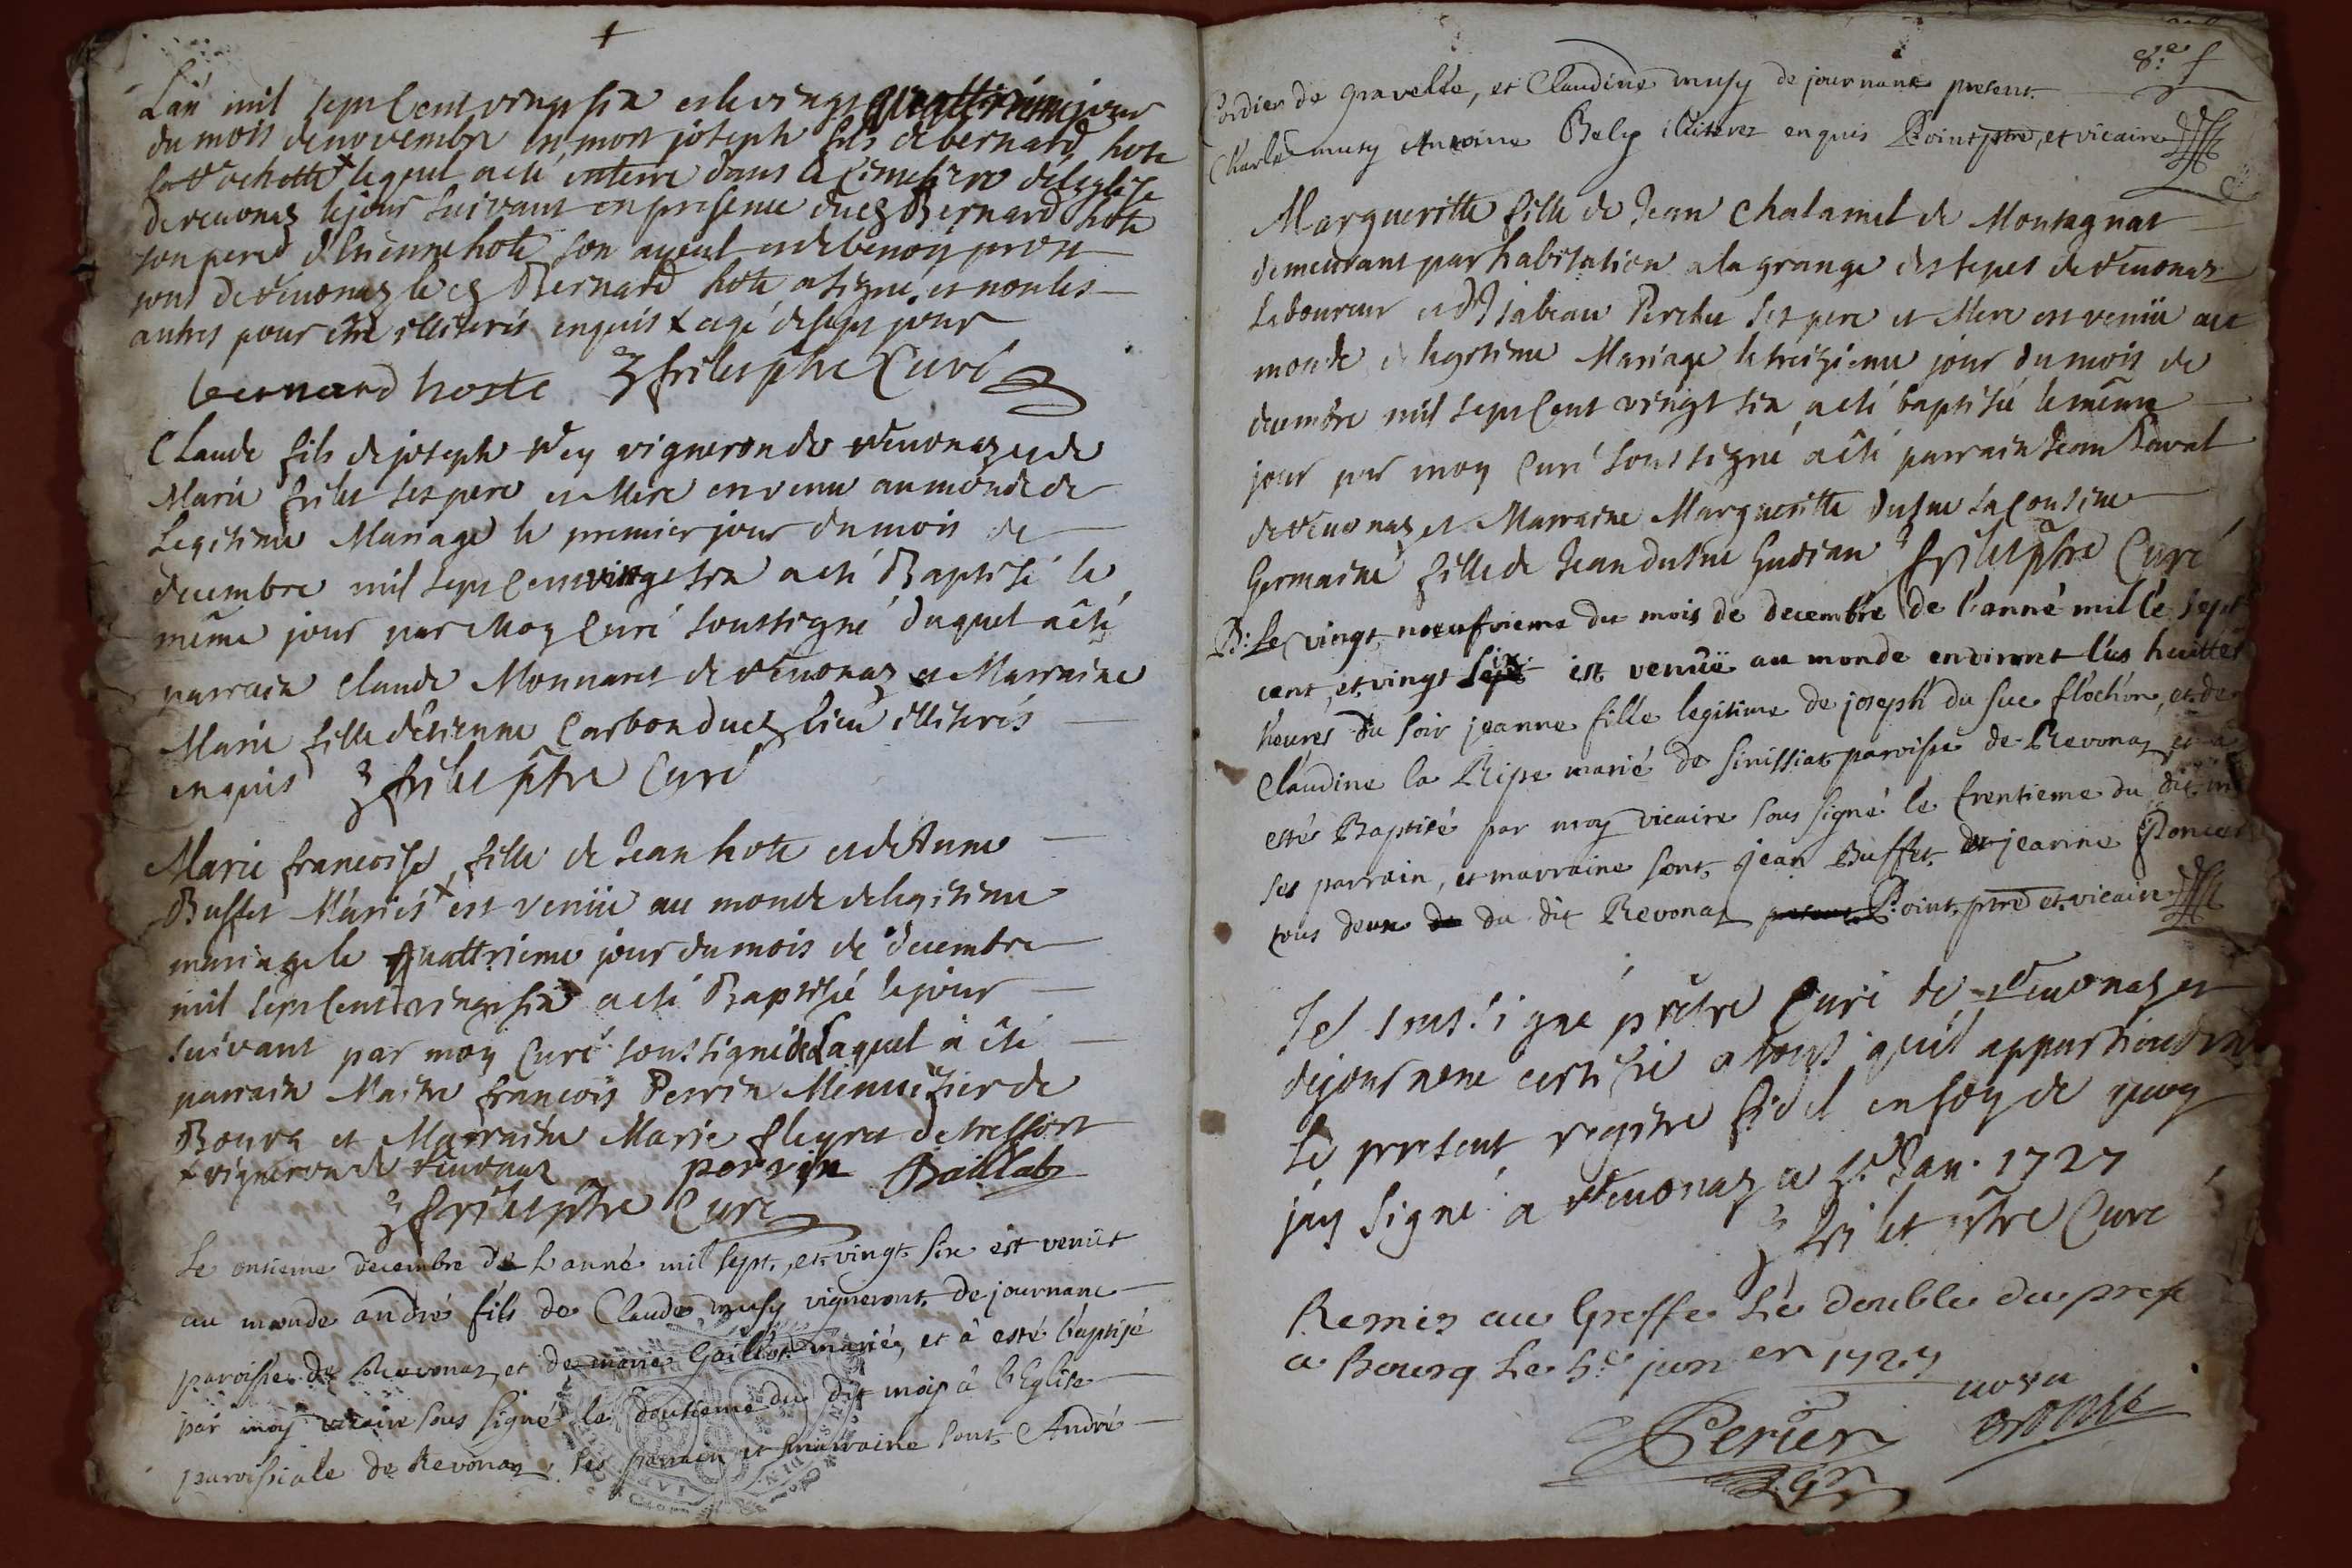 L'an mil sept cent vingt six et le vingt quattrieme jour
du mois de novembre est mort joseph fils de bernard hote
lequel a eté enterré dans le cimetiere de l'eglise
de revonaz le jour suivant en presence dud Bernard hote
son pere d'Etienne hote son ayeul et de benoy
tous de revonaz led Bernard hote a signé et non les
autres pour être illiterés enquis x agé de sept jour
bernard hoste frilet ptre Curé
Claude fils de joseph Rey vigneron de revonaz et de
Marie frilet ses pere et Mere est venu au monde de
Legitime Mariage le premier jour du mois de
decembre mil sept cent vingt six a eté Baptisé le
même jour par Moy Curé soussigné duquel a êté
parrain Claude Monnaret de revonaz et Marraine
Marie fille d'etienne Carbon dud lieu illiterés
enquis frilet ptre Curé
Marie francoise fille de Jean hote et de Anne
Buffet Mariés x est venüe au monde de legitime
mariage le quattrieme jour du mois de decembre
mil sept cent vingt six a eté Baptisé le jour
suivant par moy Curé soussigné de Laquel a êté
parrain Maitre francois Perrin Menuisier de
Bourg et Marraine Marie fleyret de treffort
x vigneron de revonaz perrin Baillat
frilet ptre Curé
Le onsieme decembre de L'anné mil sept, et vingt six est venüt
au monde andré fils de Claude musy vigneront de journanc
paroisse de Revonaz, et de marie Gaillot mariés, et à esté baptisé
par moy vicaire sous signé le doutieme du dit mois à l'Eglise
paroissiale de Revonaz, ses parrain et marraine sont André
8.e f
Cordier de gravelle, et Claudine musy de journanc present
Charle musy Antoine Bely illiterez enquis Point ptre, et vicaire
Margueritte fille de Jean Chalamel de Montagnat
demeurant par habitation a la grange des sepes de revonaz
Laboureur et d'Isabeau Perchet ses pere et Mere est venüe au
monde de legitime Mariage le treizieme jour du mois de
decembre mil sept cent vingt six a eté baptisée le même
jour par moy Curé soussigné a êté parrain Jean Raval
de revonaz et Marraine Margueritte dusuc sa Cousine
Germaine fille de Jean dusuc frilet ptre Curé
B: Le vingt noeufvieme du mois de decembre de l'anné mil le sept
cent, et vingt six est venüe au monde environt les huittes
heures du soir jeanne fille legitime de joseph du suc flochon, et de
Claudine la Ripe marié de sinissiat paroisse de Revonaz et à
esté Baptisé par moy vicaire sous signé le trentieme du dit mois
ses parrain, et marraine sont jean Buffet et jeanne Poncet
tous deux du dit Revonaz Point ptre et vicaire
Je soussigné prêtre Curé de Revonaz et
de journanc certifie a tous quil appartiendra
Le present registre fidel en foy de quoy
jay signé a revonaz ce Jan. 1727
frilet ptre Curé
Remis au Greffe Le double du prest
a Bourg Le 5.e janv.er 1727
Perier